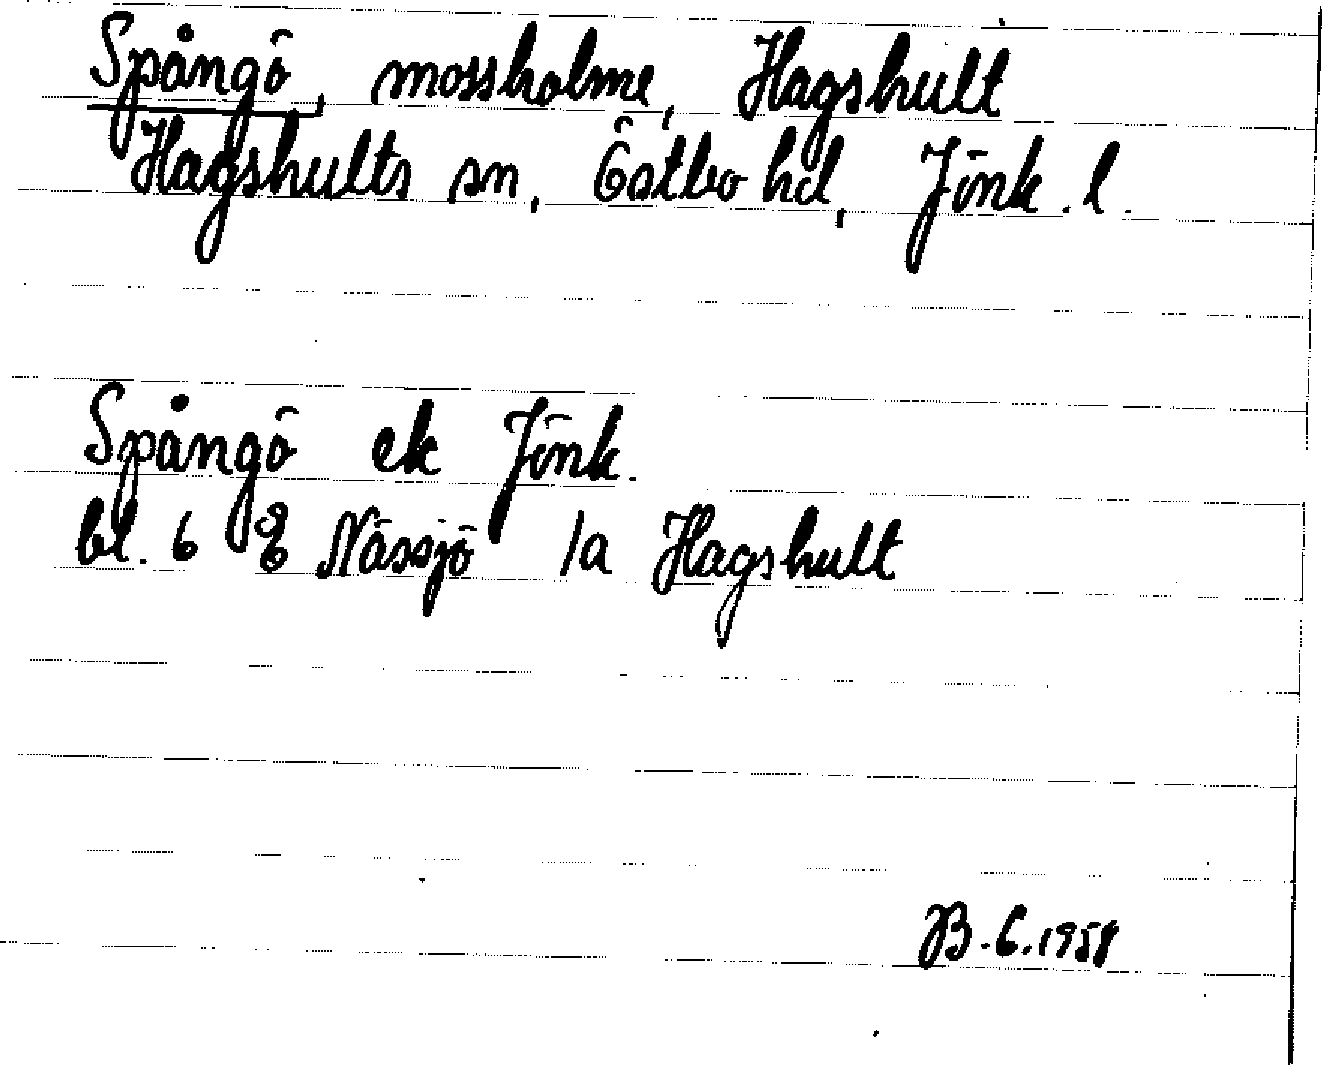 Spångö, mossholme, Hagshult
Hagshults sn, Östbo hd, Jönk. l.
Spångö ek Jönk.
bl. 6 Nässjö 1a Hagshult
B.E.1958